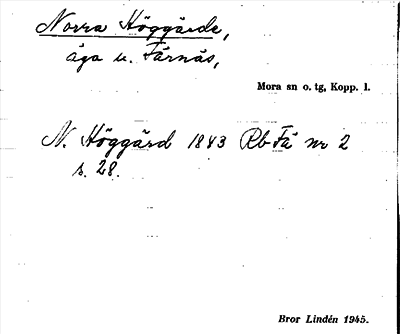 Norra Höggärde,
äga u. Färnäs,
Mora sn o. tg, Kopp. l.
N. Höggärd 1843 Rb Fä nr 2
s. 28.
Bror Lindén 1945.